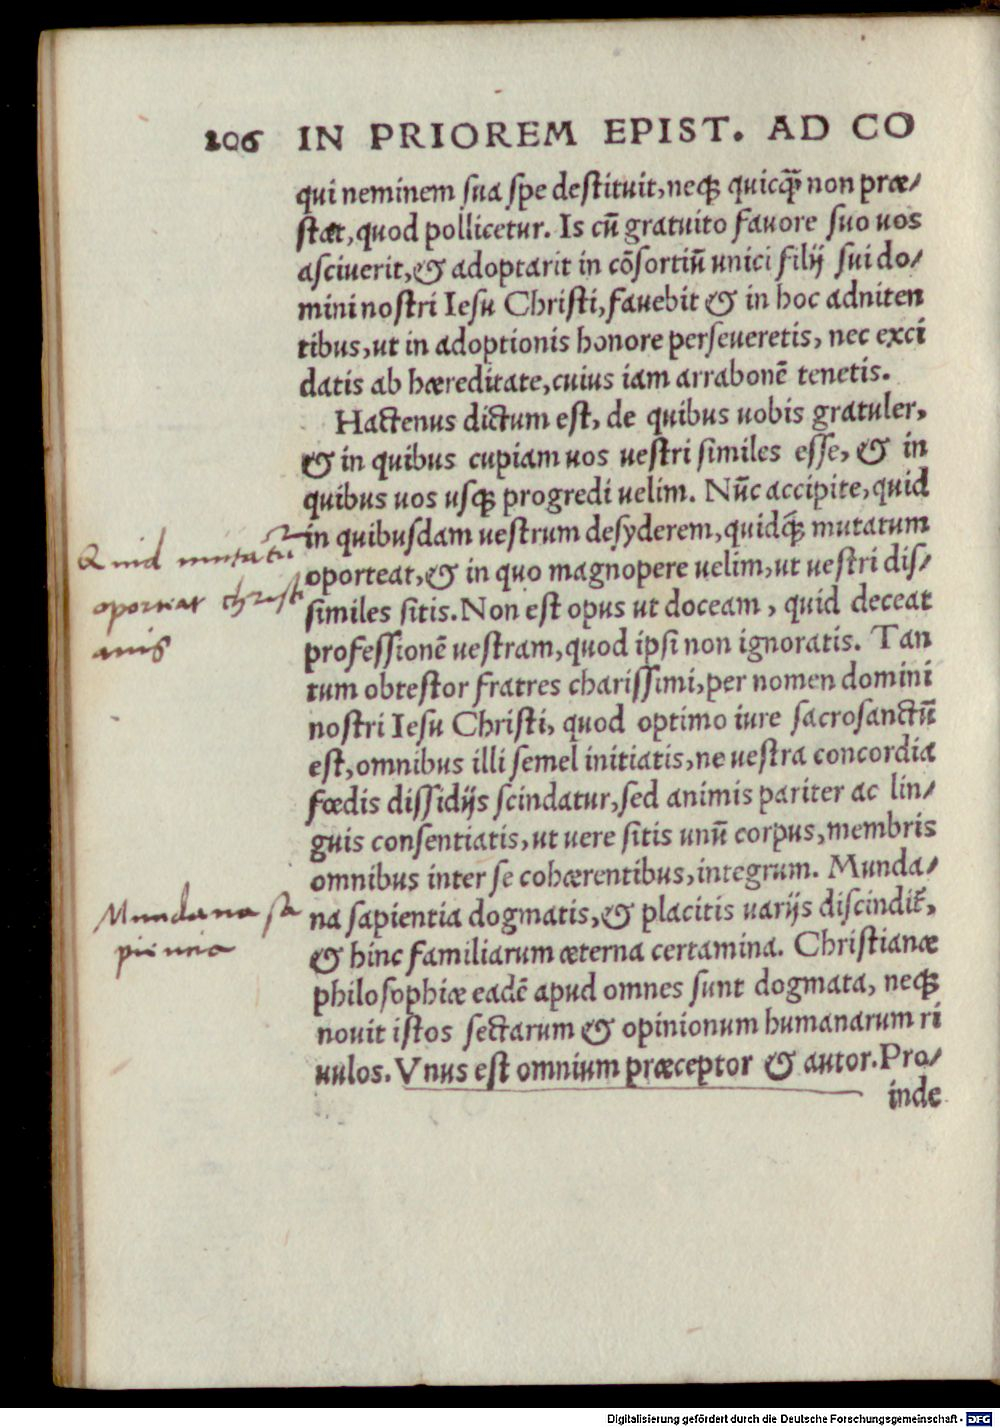 206 IN PRIOREM EPIST. AD CO
qui neminem sua spe destituit, neqꝫ quicq̃ non præ/
stat, quod pollicetur. Is cũ gratuito fauore suo uos
asciuerit, & adoptarit in cõsortiũ unici filij sui do/
mini nostri Iesu Christi, fauebit & in hoc adniten
tibus, ut in adoptionis honore perseueretis, nec exci
datis ab hæreditate, cuius iam arrabonẽ tenetis.
Hactenus dictum est, de quibus uobis gratuler,
& in quibus cupiam uos uestri similes esse, & in
quibus uos usqꝫ progredi uelim. Nũc accipite, quid
in quibusdam uestrum desyderem, quidq̃ mutatum
oporteat, & in quo magnopere uelim, ut uestri dis/
similes sitis. Non est opus ut doceam, quid deceat
professionẽ uestram, quod ipsi non ignoratis. Tan
tum obtestor fratres charissimi, per nomen domini
nostri Iesu Christi, quod optimo iure sacrosanctũ
est, omnibus illi semel initiatis, ne uestra concordia
fœdis dissidijs scindatur, sed animis pariter ac lin/
guis consentiatis, ut uere sitis unũ corpus, membris
omnibus inter se cohærentibus, integrum. Munda/
na sapientia dogmatis, & placitis uarijs discindit̃,
& hinc familiarum æterna certamina. Christianæ
philosophiæ eadẽ apud omnes sunt dogmata, neqꝫ
nouit istos sectarum & opinionum humanarum ri
uulos. Vnus est omnium præceptor & autor. Pro/
inde
Quid mutatũ
oporteat christi
anis
Mundana sa
pientia
Digitalisierung gefördert durch die Deutsche Forschungsgemeinschaft - DFG